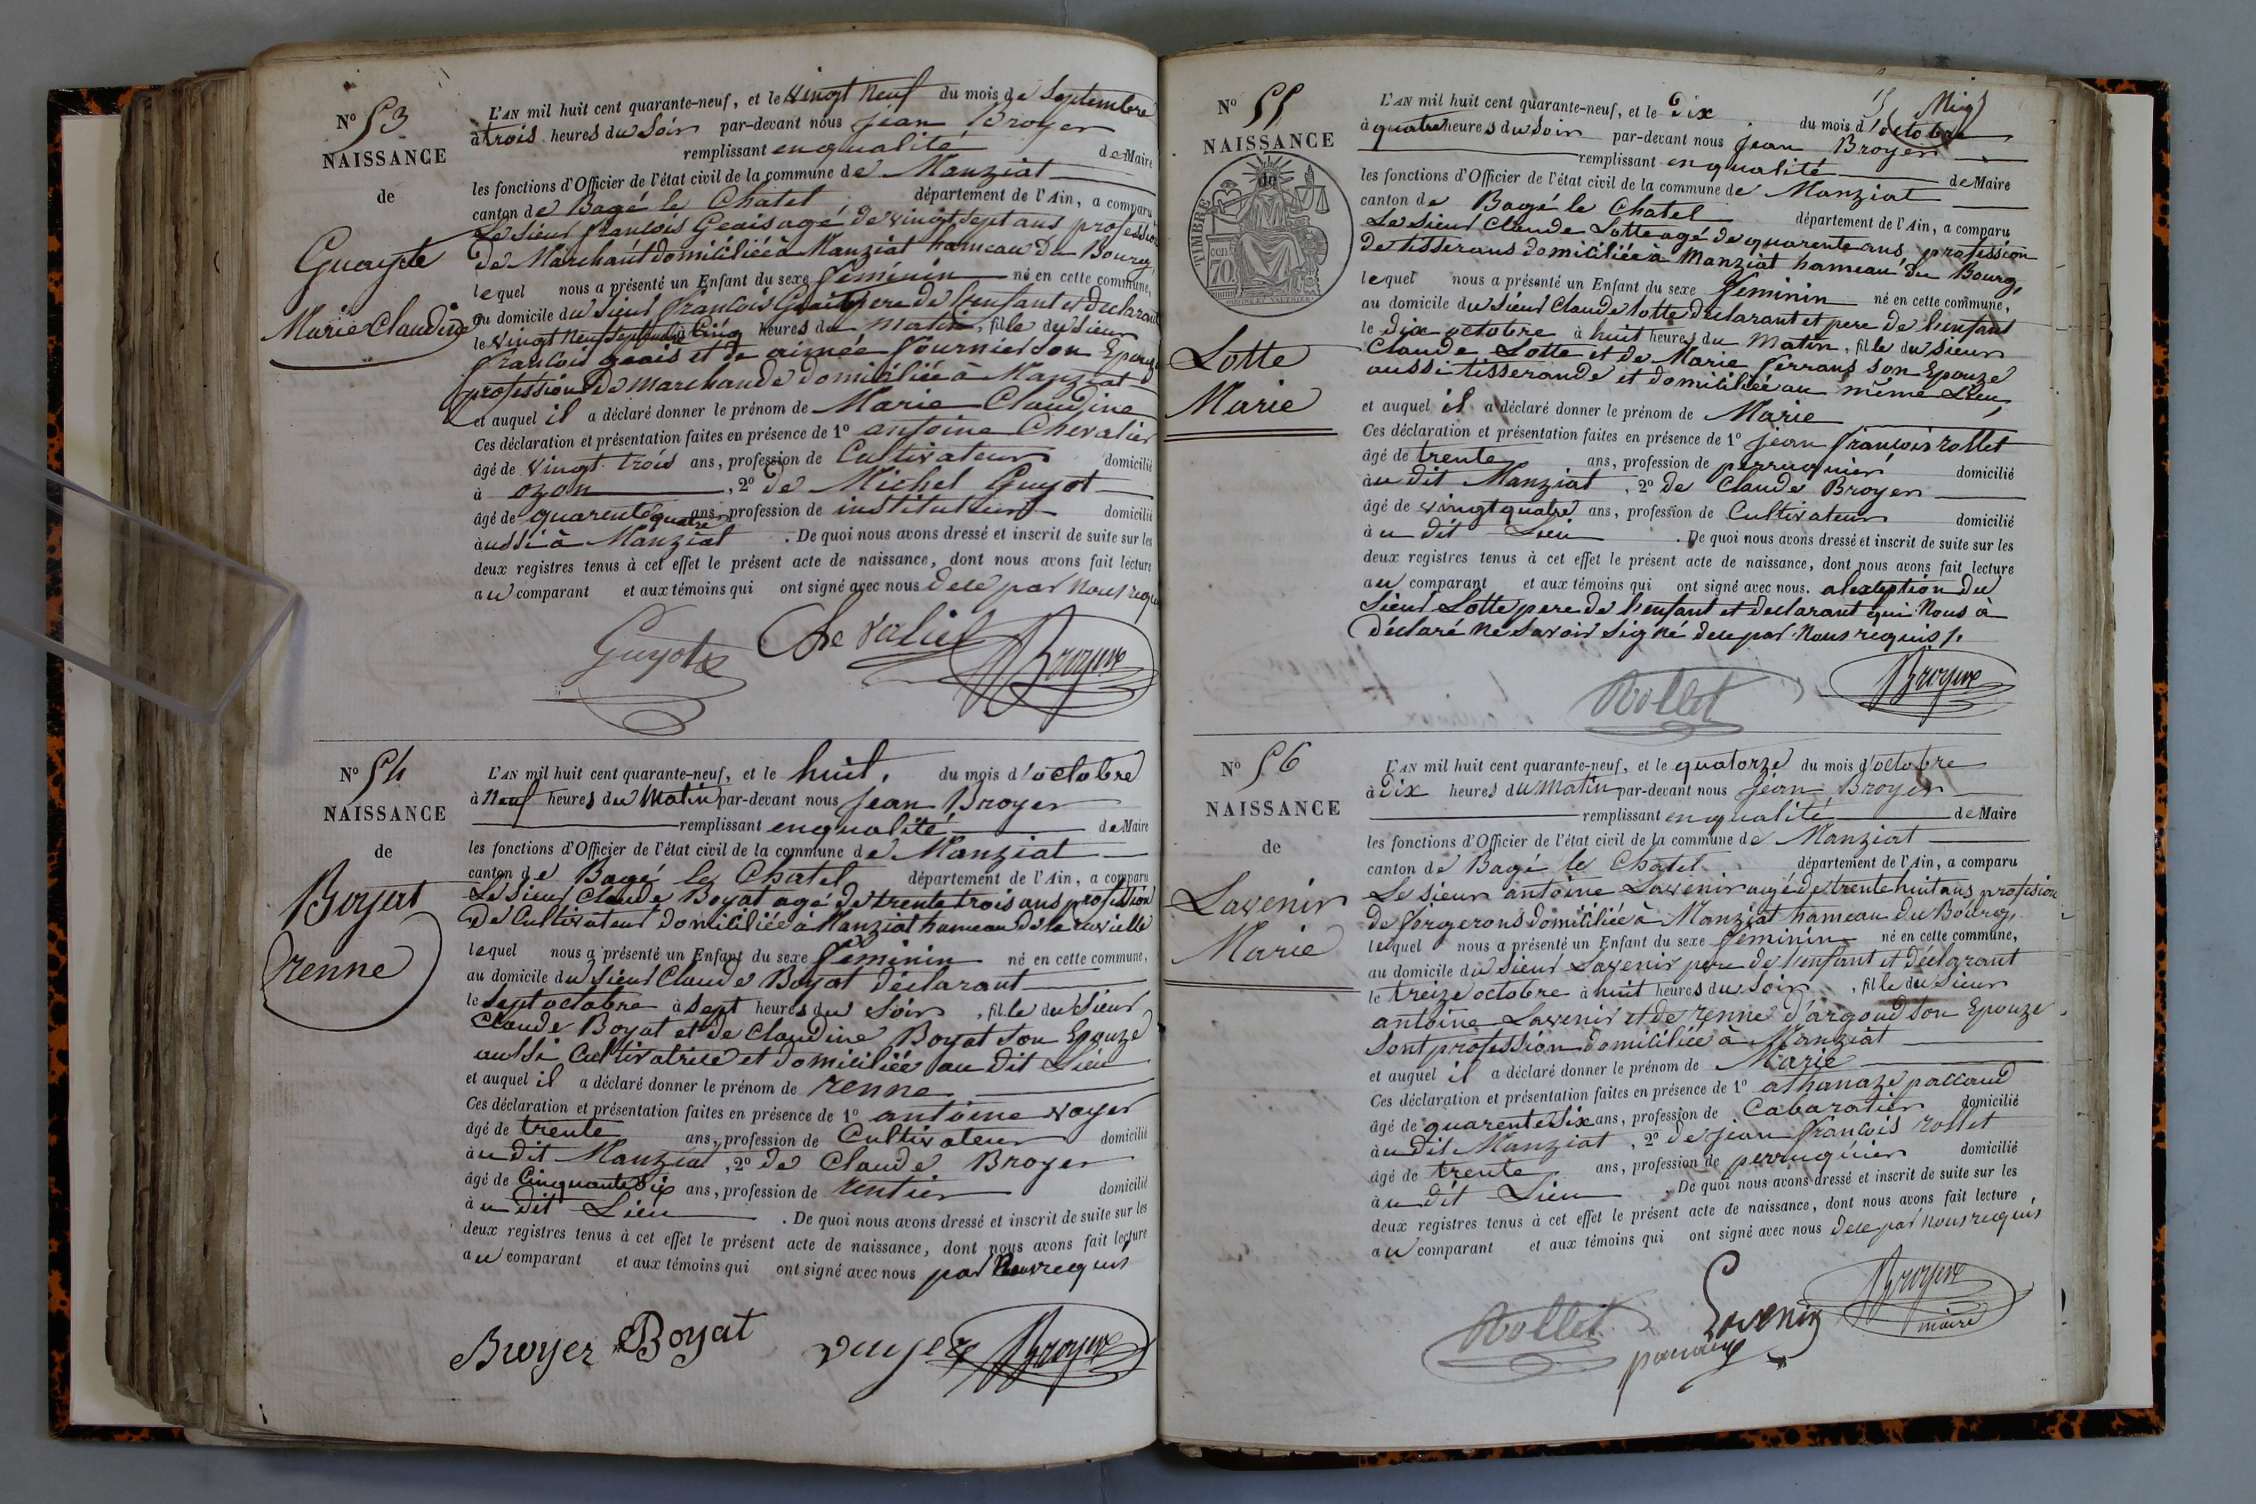 N° 53
NAISSANCE
de
Marie Claudine
L'AN mil huit cent quarante-neuf, et le vingt neuf du mois de Septembre
à trois heures du Soir par-devant nous jean Broyer
remplissant en qualité de Maire
les fonctions d'Officier de l'état civil de la commune de Manziat
canton de Bagé le Chatel département de l'Ain, a comparu
Le Sieur françois Geais agé de vingt Sept ans profession
de Marchant domiciliée à Manziat hameau du Bourg,
lequel nous a présenté un Enfant du sexe feminin né en cette commune,
au domicile du Sieur françois pere de l'enfant et declarant
le vingt neuf Septembre à Cinq heures du matin, fille du Sieur
françois geais et de aimée fournier Son Epouze
profession de marchande domiciliée à Manziat
et auquel il a déclaré donner le prénom de Marie Claudine
Ces déclaration et présentation faites en présence de 1° antoine Chevalier
âgé de vingt trois ans, profession de Cultivateur domicilié
à ozan, 2° de Michel Guyot
âgé de quarente quatre ans, profession de instituteur domicilié
aussi à Manziat. De quoi nous avons dressé et inscrit de suite sur les
deux registres tenus à cet effet le présent acte de naissance, dont nous avons fait lecture
au comparant et aux témoins qui ont signé avec nous dece par nous requis
Guyot Chevalier Broyer
N° 54
NAISSANCE
de
Boyat
renne
L'AN mil huit cent quarante-neuf, et le huit, du mois d'octobre
à Neuf heures du Matin par-devant nous jean Broyer
remplissant en qualité de Maire
les fonctions d'Officier de l'état civil de la commune de Manziat
canton de Bagé le Chatel département de l'Ain, a comparu
Le Sieur Claude Boyat agé de trente trois ans profession
De Cultivateur domiciliée à Manziat hameau de la
lequel nous a présenté un Enfant du sexe feminin né en cette commune,
au domicile du Sieur Claude Boyat déclarant
le Sept octobre à Sept heures du Soir, fille du Sieur
Claude Boyat et de Claudine Boyat Son Epouze
aussi Cultivatrice et domiciliée au dit Lieu
et auquel il a déclaré donner le prénom de renne
Ces déclaration et présentation faites en présence de 1° antoine voyer
âgé de trente ans, profession de Cultivateur domicilié
au dit Manziat, 2° de Claude Broyer
âgé de Cinquante Six ans, profession de rentier domicilié
au dit Lieu. De quoi nous avons dressé et inscrit de suite sur les
deux registres tenus à cet effet le présent acte de naissance, dont nous avons fait lecture
au comparant et aux témoins qui ont signé avec nous par Nous requis
Broyer Boyat voyer Broyer
N° 55
NAISSANCE
de
TIMBRE
70
Lotte
Marie
L'AN mil huit cent quarante-neuf, et le Dix du mois d'octobre
à quatre heures du Soir par-devant nous jean Broyer
remplissant en qualité de Maire
les fonctions d'Officier de l'état civil de la commune de Manziat
canton de Bagé le Chatel département de l'Ain, a comparu
Le Sieur Claude Lotte agé de quarente ans profession
de tisserans domiciliée à Manziat hameau du Bourg,
lequel nous a présenté un Enfant du sexe feminin né en cette commune,
au domicile du Sieur Claude Lotte declarant et pere de l'enfant
le Dix octobre à huit heures du Matin, fille du Sieur
Claude Lotte et de Marie ferrans son Epouze
aussi tisserande et domiciliée au même Lieu,
et auquel il a déclaré donner le prénom de Marie
Ces déclaration et présentation faites en présence de 1° jean françois rollet
âgé de trente ans, profession de perruquier domicilié
au dit Manziat, 2° de Claude Broyer
âgé de vingt quatre ans, profession de Cultivateur domicilié
au dit Lieu. De quoi nous avons dressé et inscrit de suite sur les
deux registres tenus à cet effet le présent acte de naissance, dont nous avons fait lecture
au comparant et aux témoins qui ont signé avec nous. alexeption du
Sieur Lotte pere de l'enfant et declarant qui Nous à
déclaré ne Savoir Signé dece par Nous requis
Rollet Broyer
N° 56
NAISSANCE
de
Lavenir
Marie
L'AN mil huit cent quarante-neuf, et le quatorze du mois d'octobre
à Dix heures du Matin par-devant nous jean Broyer
remplissant en qualité de Maire
les fonctions d'Officier de l'état civil de la commune de Manziat
canton de Bagé le Chatel département de l'Ain, a comparu
Le Sieur antoine Lavenir agé de trente huit ans profession
de forgerons domiciliée à Manziat hameau du Bourg,
lequel nous a présenté un Enfant du sexe feminin né en cette commune,
au domicile du Sieur Lavenir pere de l'enfant et déclarant
le treize octobre à huit heures du Soir, fille du Sieur
antoine Lavenir et de renne d'argoud Son Epouze
Sont profession domiciliée à Manziat
et auquel il a déclaré donner le prénom de Marie
Ces déclaration et présentation faites en présence de 1° athanaze paccaud
âgé de quarente Six ans, profession de Cabaratier domicilié
au dit Manziat, 2° de jean françois rollet
âgé de trente ans, profession de perruquier domicilié
au dit Lieu. De quoi nous avons dressé et inscrit de suite sur les
deux registres tenus à cet effet le présent acte de naissance, dont nous avons fait lecture
au comparant et aux témoins qui ont signé avec nous dece par nous requis
Rollet Lavenir Broyer
maire